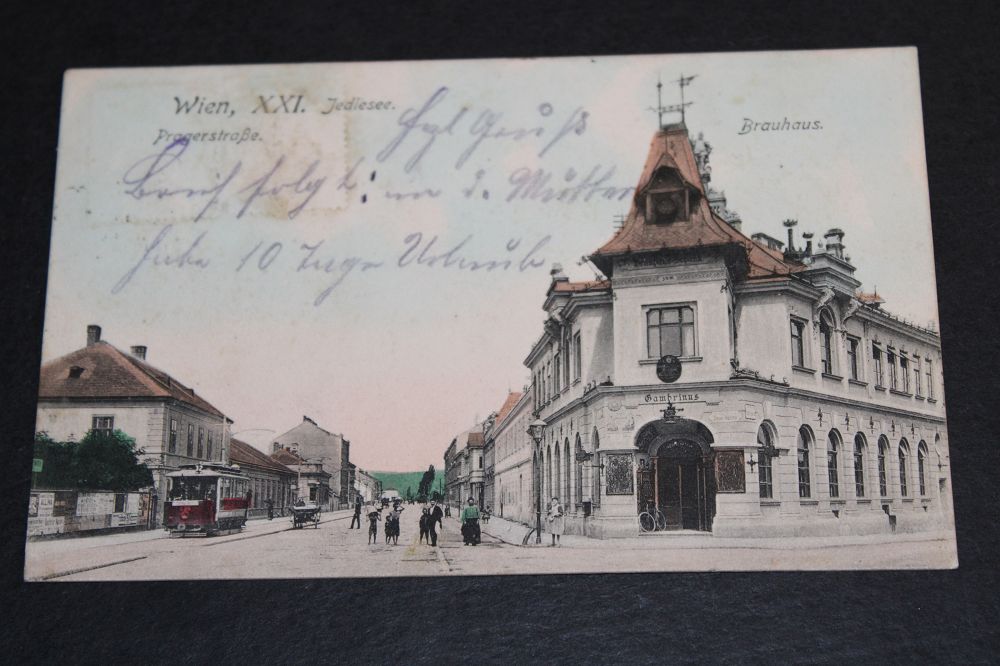 Wien, XXI. Jedlesee.
Pragerstraße.
Brauhaus.
Hzl Gruß
Brief folgt! an d. Mutter
habe 10 Tage Urlaub
Gambrinus